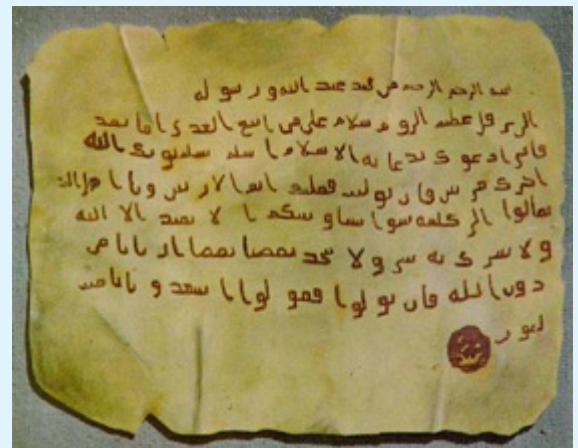 بسم الرحمن الرحيم من محمد عبد الله و رسو له
الى هرقل عظيم الروم سلام على من اتبع الهدى اما بعد
فانى ادعوك بدعاية الاسلام اسلم تسلم يوتك الله
اجرك مرتين فان توليت فعليك اثم الاريسين ويا اهل
تعالوا الى كلمة سوا بيننا وبينكم ا لا نعبد الا الله
ولا نشرك به ولا يتخذ بعضنا بعضا اربابا من
دون الله فان تولوا فقولوا اشهدو بانا